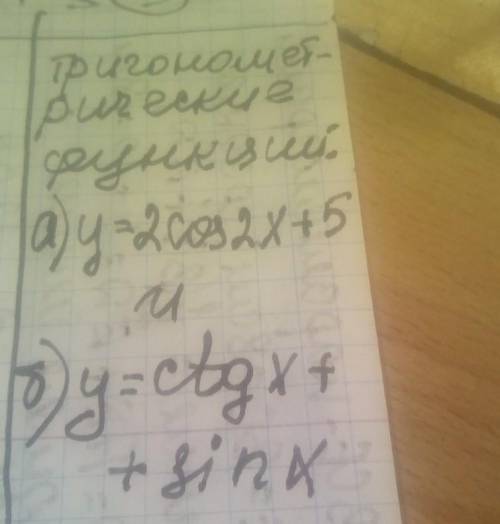 тригономет-
рические
функций.
а) y=2cos2x+5
и
б) y=ctgx+
+sinx